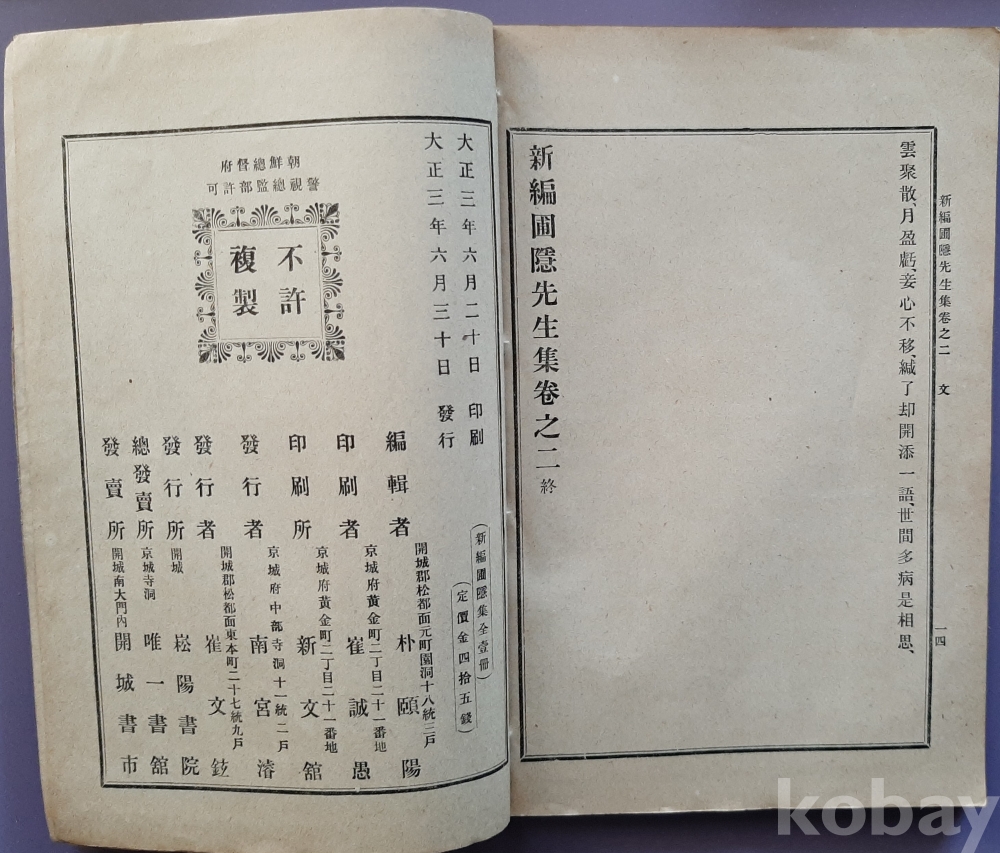 新編圃隱先生集卷之二 文
一四
雲聚散、月盈虧、妾心不移、緘了却開添一語、世間多病是相思、
新編圃隱先生集卷之二 終
大正三年六月二十日 印刷
大正三年六月三十日 發行
朝鮮總督府
警視總監部許可
不許
複製
(新編圃隱集全壹冊)
(定價金四拾五錢)
編輯者 開城郡松都面元町園洞十八統三戶 朴頤陽
印刷者 京城府黃金町二丁目二十一番地 崔誠愚
印刷所 京城府黃金町二丁目二十一番地 新文舘
發行者 京城府中部寺洞十一統二戶 南宮濬
發行者 開城郡松都面東本町二十七統九戶 崔文鉉
發行所 開城 崧陽書院
總發賣所 京城寺洞 唯一書舘
發賣所 開城南大門內 開城書市
kobay